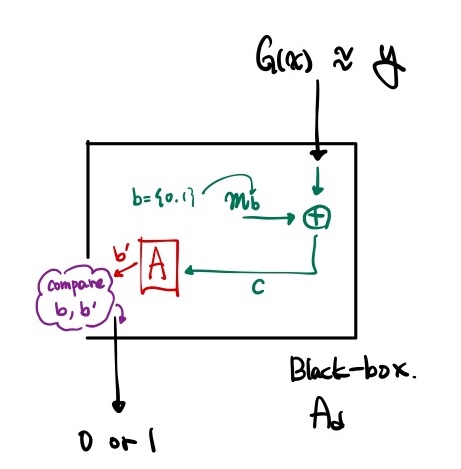 G(x) ≈ y
b={0.1}
mb
+
b'
A
c
compare
b, b'
Black-box.
Ad
0 or 1